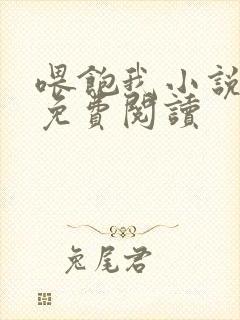 喂飽我小說
免費閱讀
兔尾君